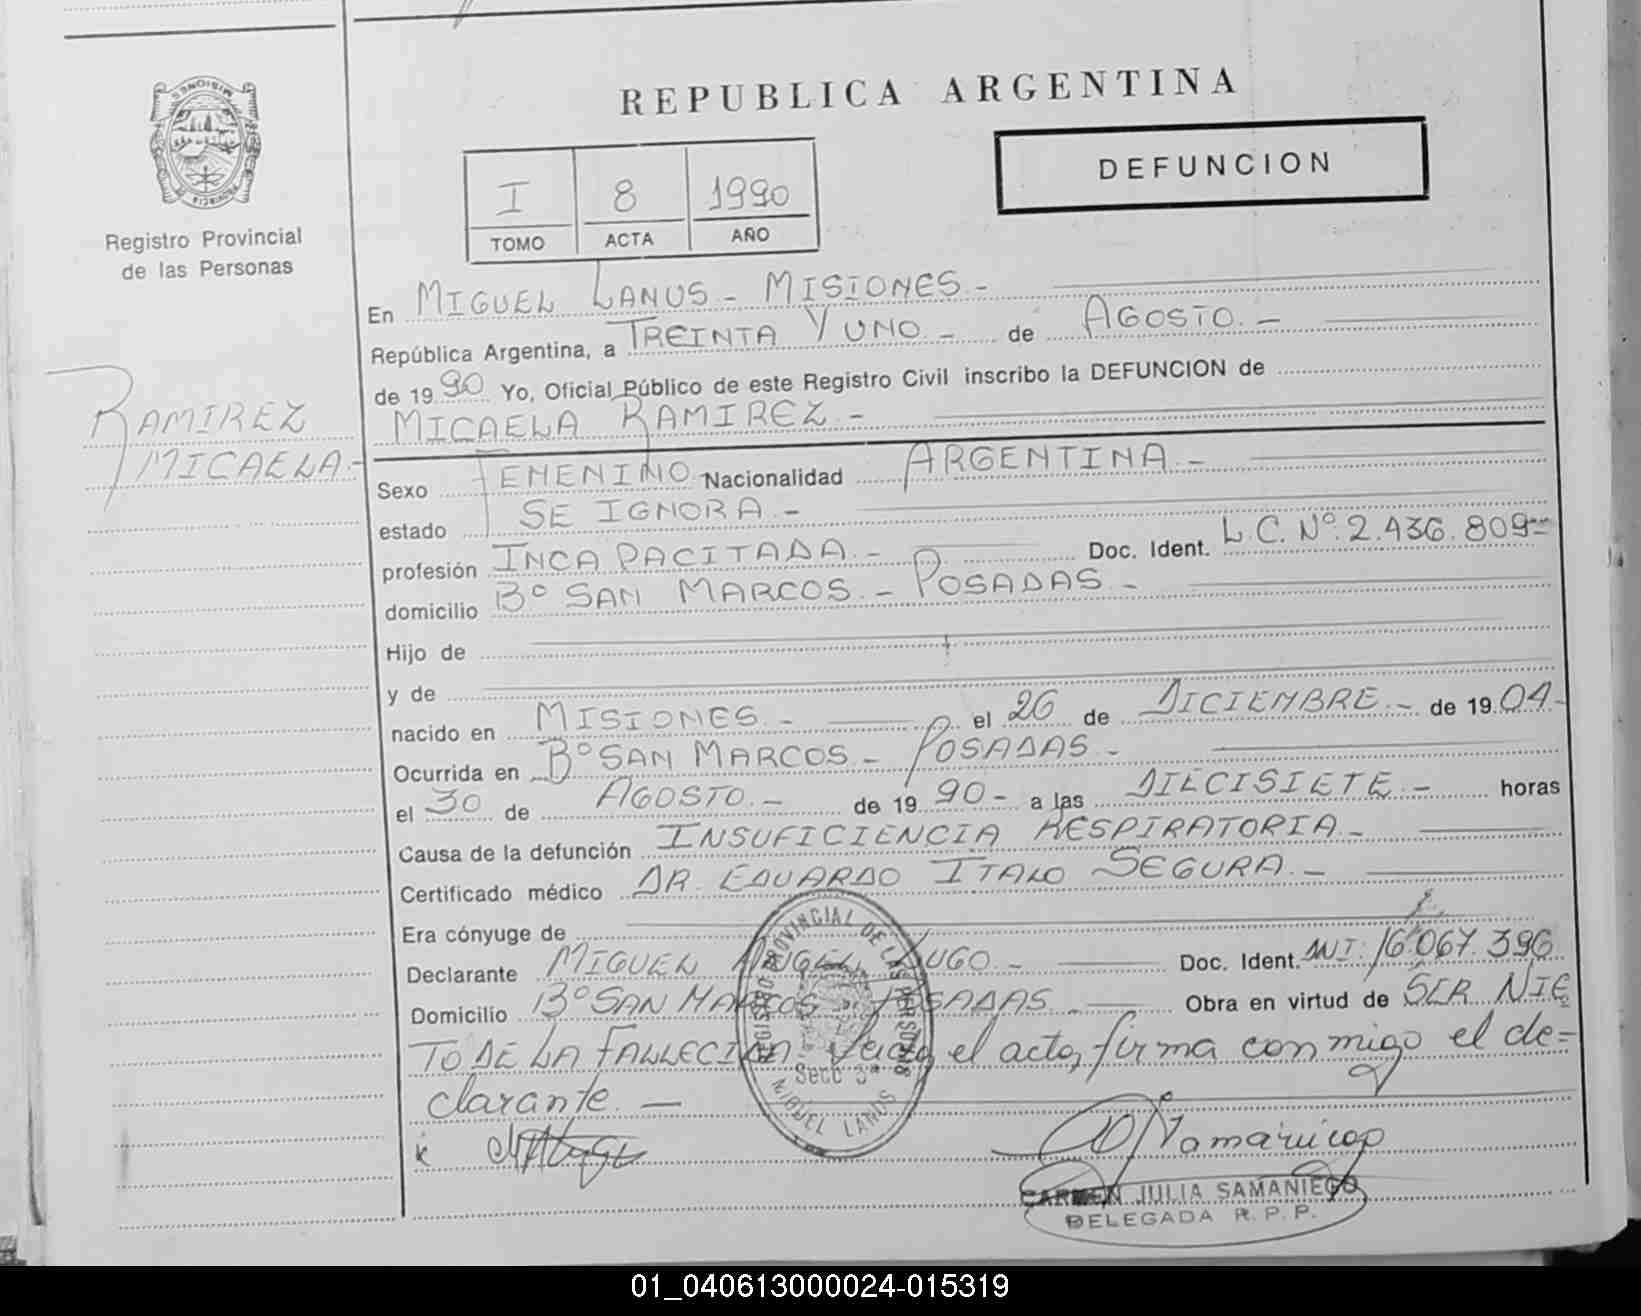 REPUBLICA ARGENTINA
MISIONES
PROVINCIA
Registro Provincial
de las Personas
RAMIREZ
MICAELA.-
I 8 1990
TOMO ACTA AÑO
DEFUNCION
En MIGUEL LANUS - MISIONES.-
República Argentina, a TREINTA Y UNO.- de AGOSTO.-
de 1990 Yo, Oficial Público de este Registro Civil inscribo la DEFUNCION de
MICAELA RAMIREZ.-
Sexo FEMENINO Nacionalidad ARGENTINA.-
estado SE IGNORA.-
profesión INCAPACITADA.- Doc. Ident. L.C. Nº. 2.436.809-
domicilio Bº SAN MARCOS.- POSADAS.-
Hijo de
y de
nacido en MISIONES.- el 26 de DICIEMBRE.- de 1904.-
Ocurrida en Bº SAN MARCOS - POSADAS.-
el 30 de AGOSTO.- de 1990- a las DIECISIETE.- horas
Causa de la defunción INSUFICIENCIA RESPIRATORIA.-
Certificado médico DR. EDUARDO ITALO SEGURA.-
Era cónyuge de
Declarante MIGUEL ANGEL LUGO.- Doc. Ident. DNI: 16.067.396
Domicilio Bº SAN MARCOS POSADAS.- Obra en virtud de SER NIE
TO DE LA FALLECIDA Leida el acta, firma conmigo el de=
clarante. —
REGISTRO PROVINCIAL DE LAS PERSONAS
Secc 3ª
MIGUEL LANUS
CARMEN JULIA SAMANIEGO
DELEGADA R.P.P.
01_040613000024-015319